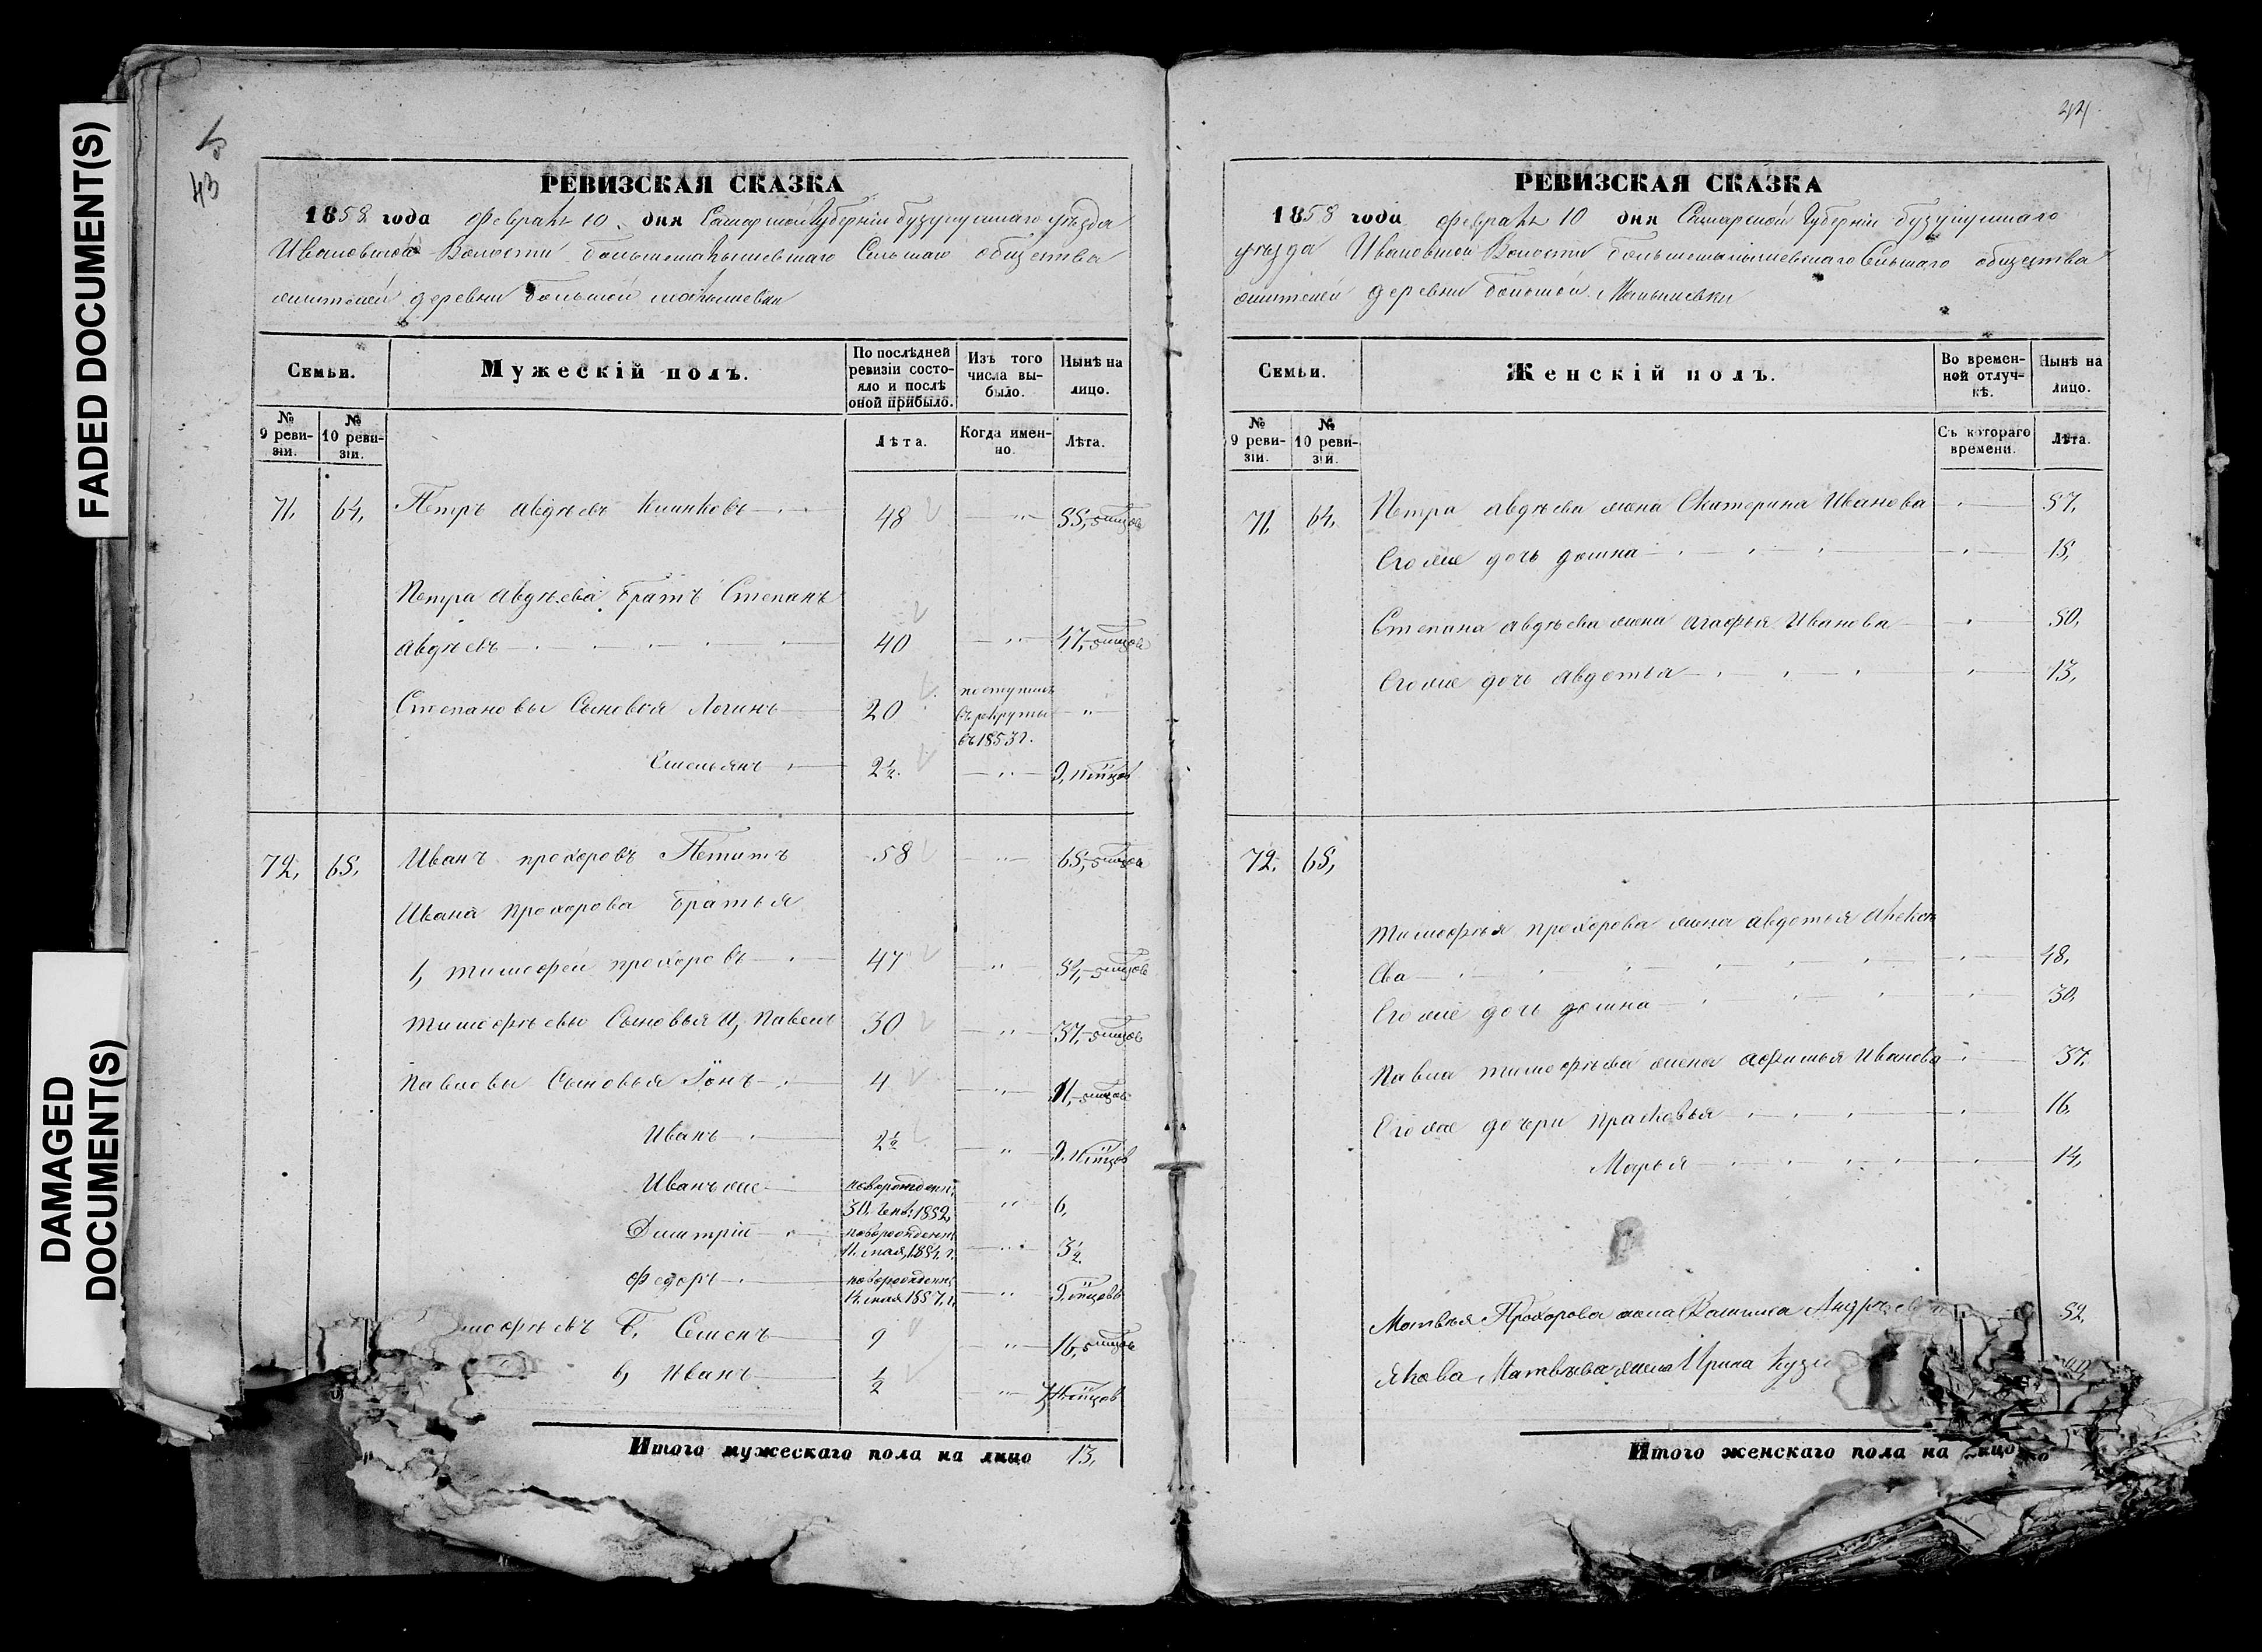 FADED DOCUMENT(S)
DAMAGED
DOCUMENT(S)
43
РЕВИЗСКАЯ СКАЗКА
1858 года февраля 10 дня Самарской Губернии Бузулукскаго уѣзда
Ивановской Волости Большемалышевскаго Сельскаго общества
жителей деревни Большой Малышевки
Семьи.
Мужескій полъ.
По послѣдней ревизіи состояло и послѣ оной прибыло.
Изъ того числа выбыло.
Нынѣ на лицо.
№ 9 ревизіи.
№ 10 ревизіи.
Лѣта.
Когда именно.
Лѣта.
71. 64. Петръ Авдѣевъ 48 55,
Петра Авдѣева братъ Степанъ
Авдѣевъ 40 47,
Степановы Сыновья Логинъ 20 поступилъ въ рекруты въ 1853 г.
Емельянъ 2½ 9,
72, 65, Иванъ Прохоровъ 58 65,
Ивана Прохорова братья
1, Тимофей Прохоровъ 47 54,
Тимофѣевы Сыновья а, Павелъ 30 37,
Павловы Сыновья Іонъ 4 11,
Иванъ 2½ 9,
Иванъ же новорожден: 30. Ген: 1852, 6,
Дмитрій новорожден: 11. мая, 1854, г. 3½
Федоръ новорожден: 14, мая 1857, г.
мофѣевъ б, Семенъ 9 16,
в, Иванъ ½
Итого мужескаго пола на лицо 13,
44
РЕВИЗСКАЯ СКАЗКА
1858 года февраля 10 дня Самарской Губерніи Бузулукскаго
уѣзда Ивановской Волости Большемалышевскаго Сельскаго общества
жителей деревни Большой Малышевки
Семьи.
Женскій полъ.
Во временной отлучкѣ.
Нынѣ на лицо.
№ 9 ревизіи.
№ 10 ревизіи.
Съ котораго времени.
Лѣта.
71. 64. Петра Авдѣева жена Екатерина Иванова 57,
Его же дочь Домна 15,
Степана Авдѣева жена Агафья Иванова 50,
Его же дочь Авдотья 13,
72. 65,
Тимофѣя Прохорова жена Авдотья Алексѣ
ева 48.
Его же дочь Домна 30,
Павла Тимофѣева жена Афимья Иванова 37,
Его же дочери Прасковья 16,
Марья 14,
Матвѣя Прохорова жена Василиса Андрѣев 52,
Якова Матвѣева жена Ирина Кузь
Итого женскаго пола на лицо